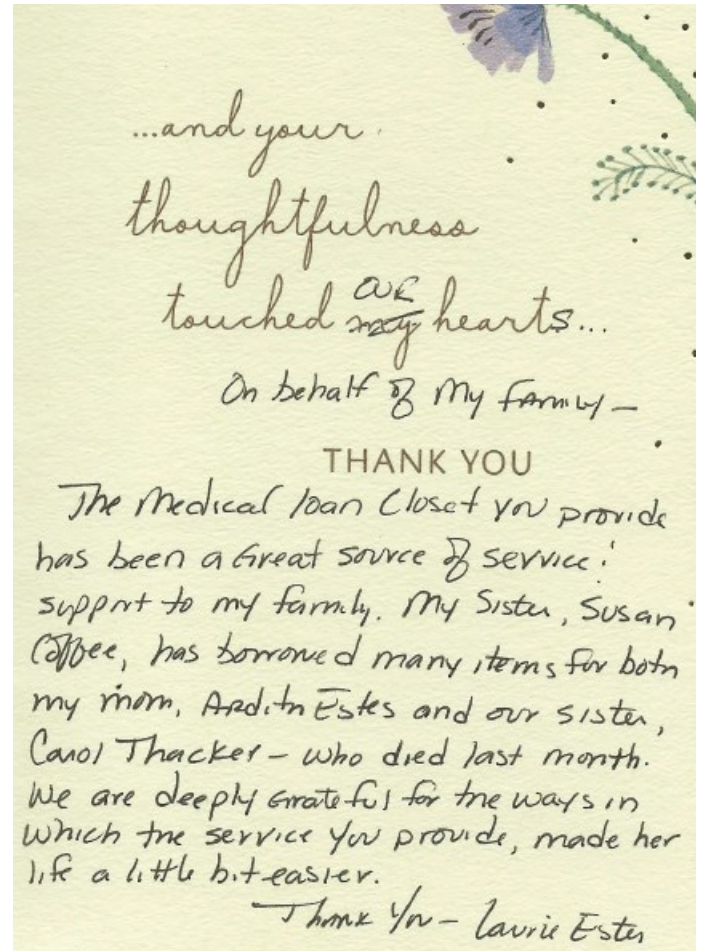 ...and your
thoughtfulness
our
touched my hearts...
On behalf of My family —
THANK YOU
The Medical loan Closet you provide
has been a Great source of service &
support to my family. My Sister, Susan
Coffee, has borrowed many items for both
my mom, Ardith Estes and our sister,
Carol Thacker — who died last month.
We are deeply Grateful for the ways in
which the service you provide, made her
life a little bit easier.
Thank You — Laurie Estes